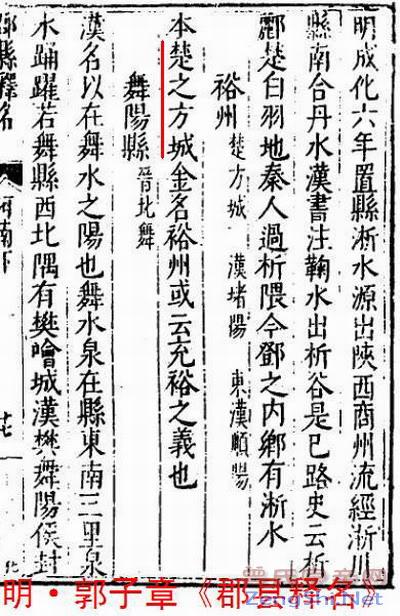 明成化六年置縣淅水源出陝西商州流經淅川
縣南合丹水漢書注鞠水出析谷是已路史云析
酈楚白羽地秦人過析隈今鄧之内鄉有淅水
裕州 楚方城 漢堵陽 東漢順陽
本楚之方城金名裕州或云充裕之義也
舞陽縣 晉北舞
漢名以在舞水之陽也舞水泉在縣東南三里泉
水踊躍若舞縣西北隅有樊噲城漢樊舞陽侯封
郡縣釋名 河南下
明·郭子章《郡县释名》
ZengShi.Net